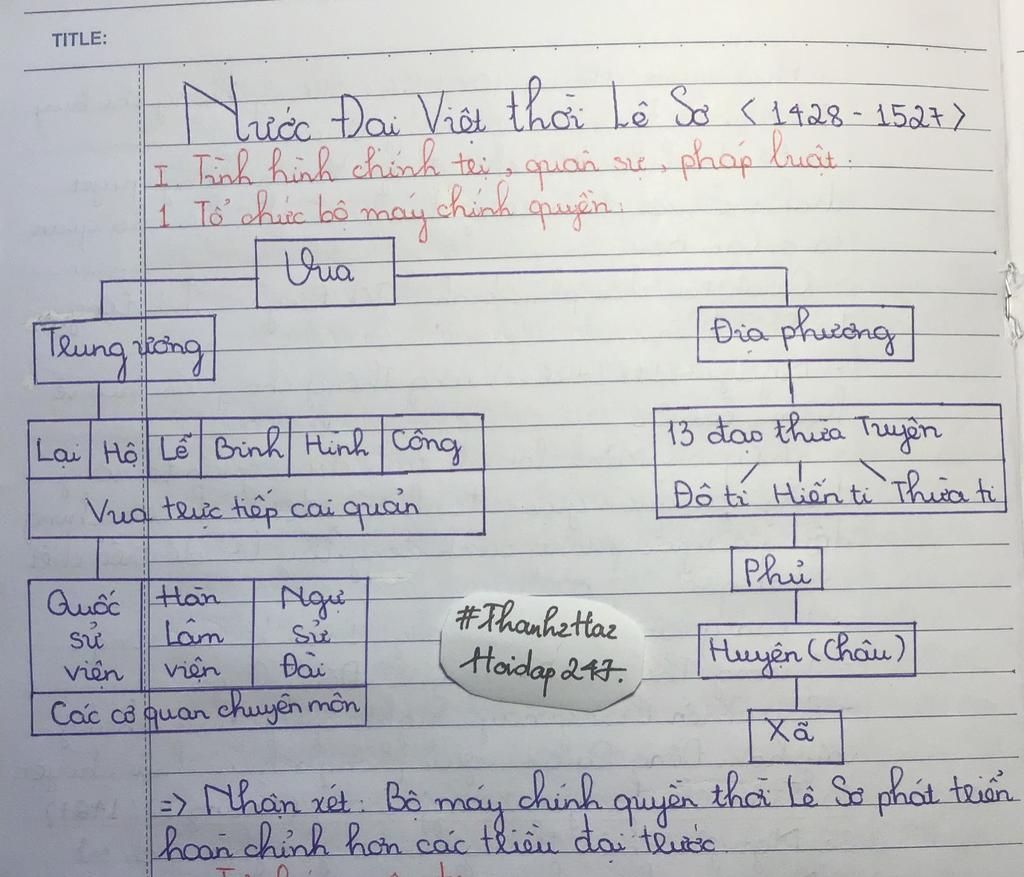 TITLE:
Nước Đại Việt thời Lê Sơ < 1428 - 1527 >
I. Tình hình chính trị, quân sự, pháp luật.
1 Tổ chức bộ máy chính quyền:
Vua
Trung ương
Địa phương
Lại Hộ Lễ Binh Hình Công
Vua trực tiếp cai quản
13 đạo thừa Truyên
Đô ti Hiến ti Thừa ti
Phủ
Quốc sử viện
Hàn Lâm viện
Ngự Sử Đài
Các cơ quan chuyên môn
#ThanhzHaz
Hoidap247.
Huyện (Châu)
Xã
=> Nhận xét: Bộ máy chính quyền thời Lê Sơ phát triển
hoàn chỉnh hơn các triều đại trước